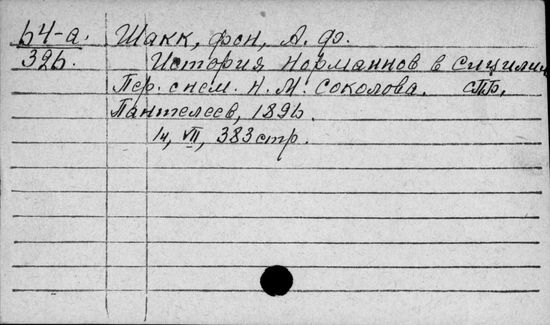 64-а. Шакк, фон, А. Ф.
326. История норманнов в Сицилии
Пер. с нем. Н. М. Соколова. СПб,
Пантелеев, 1896.
14, VII, 383 стр.